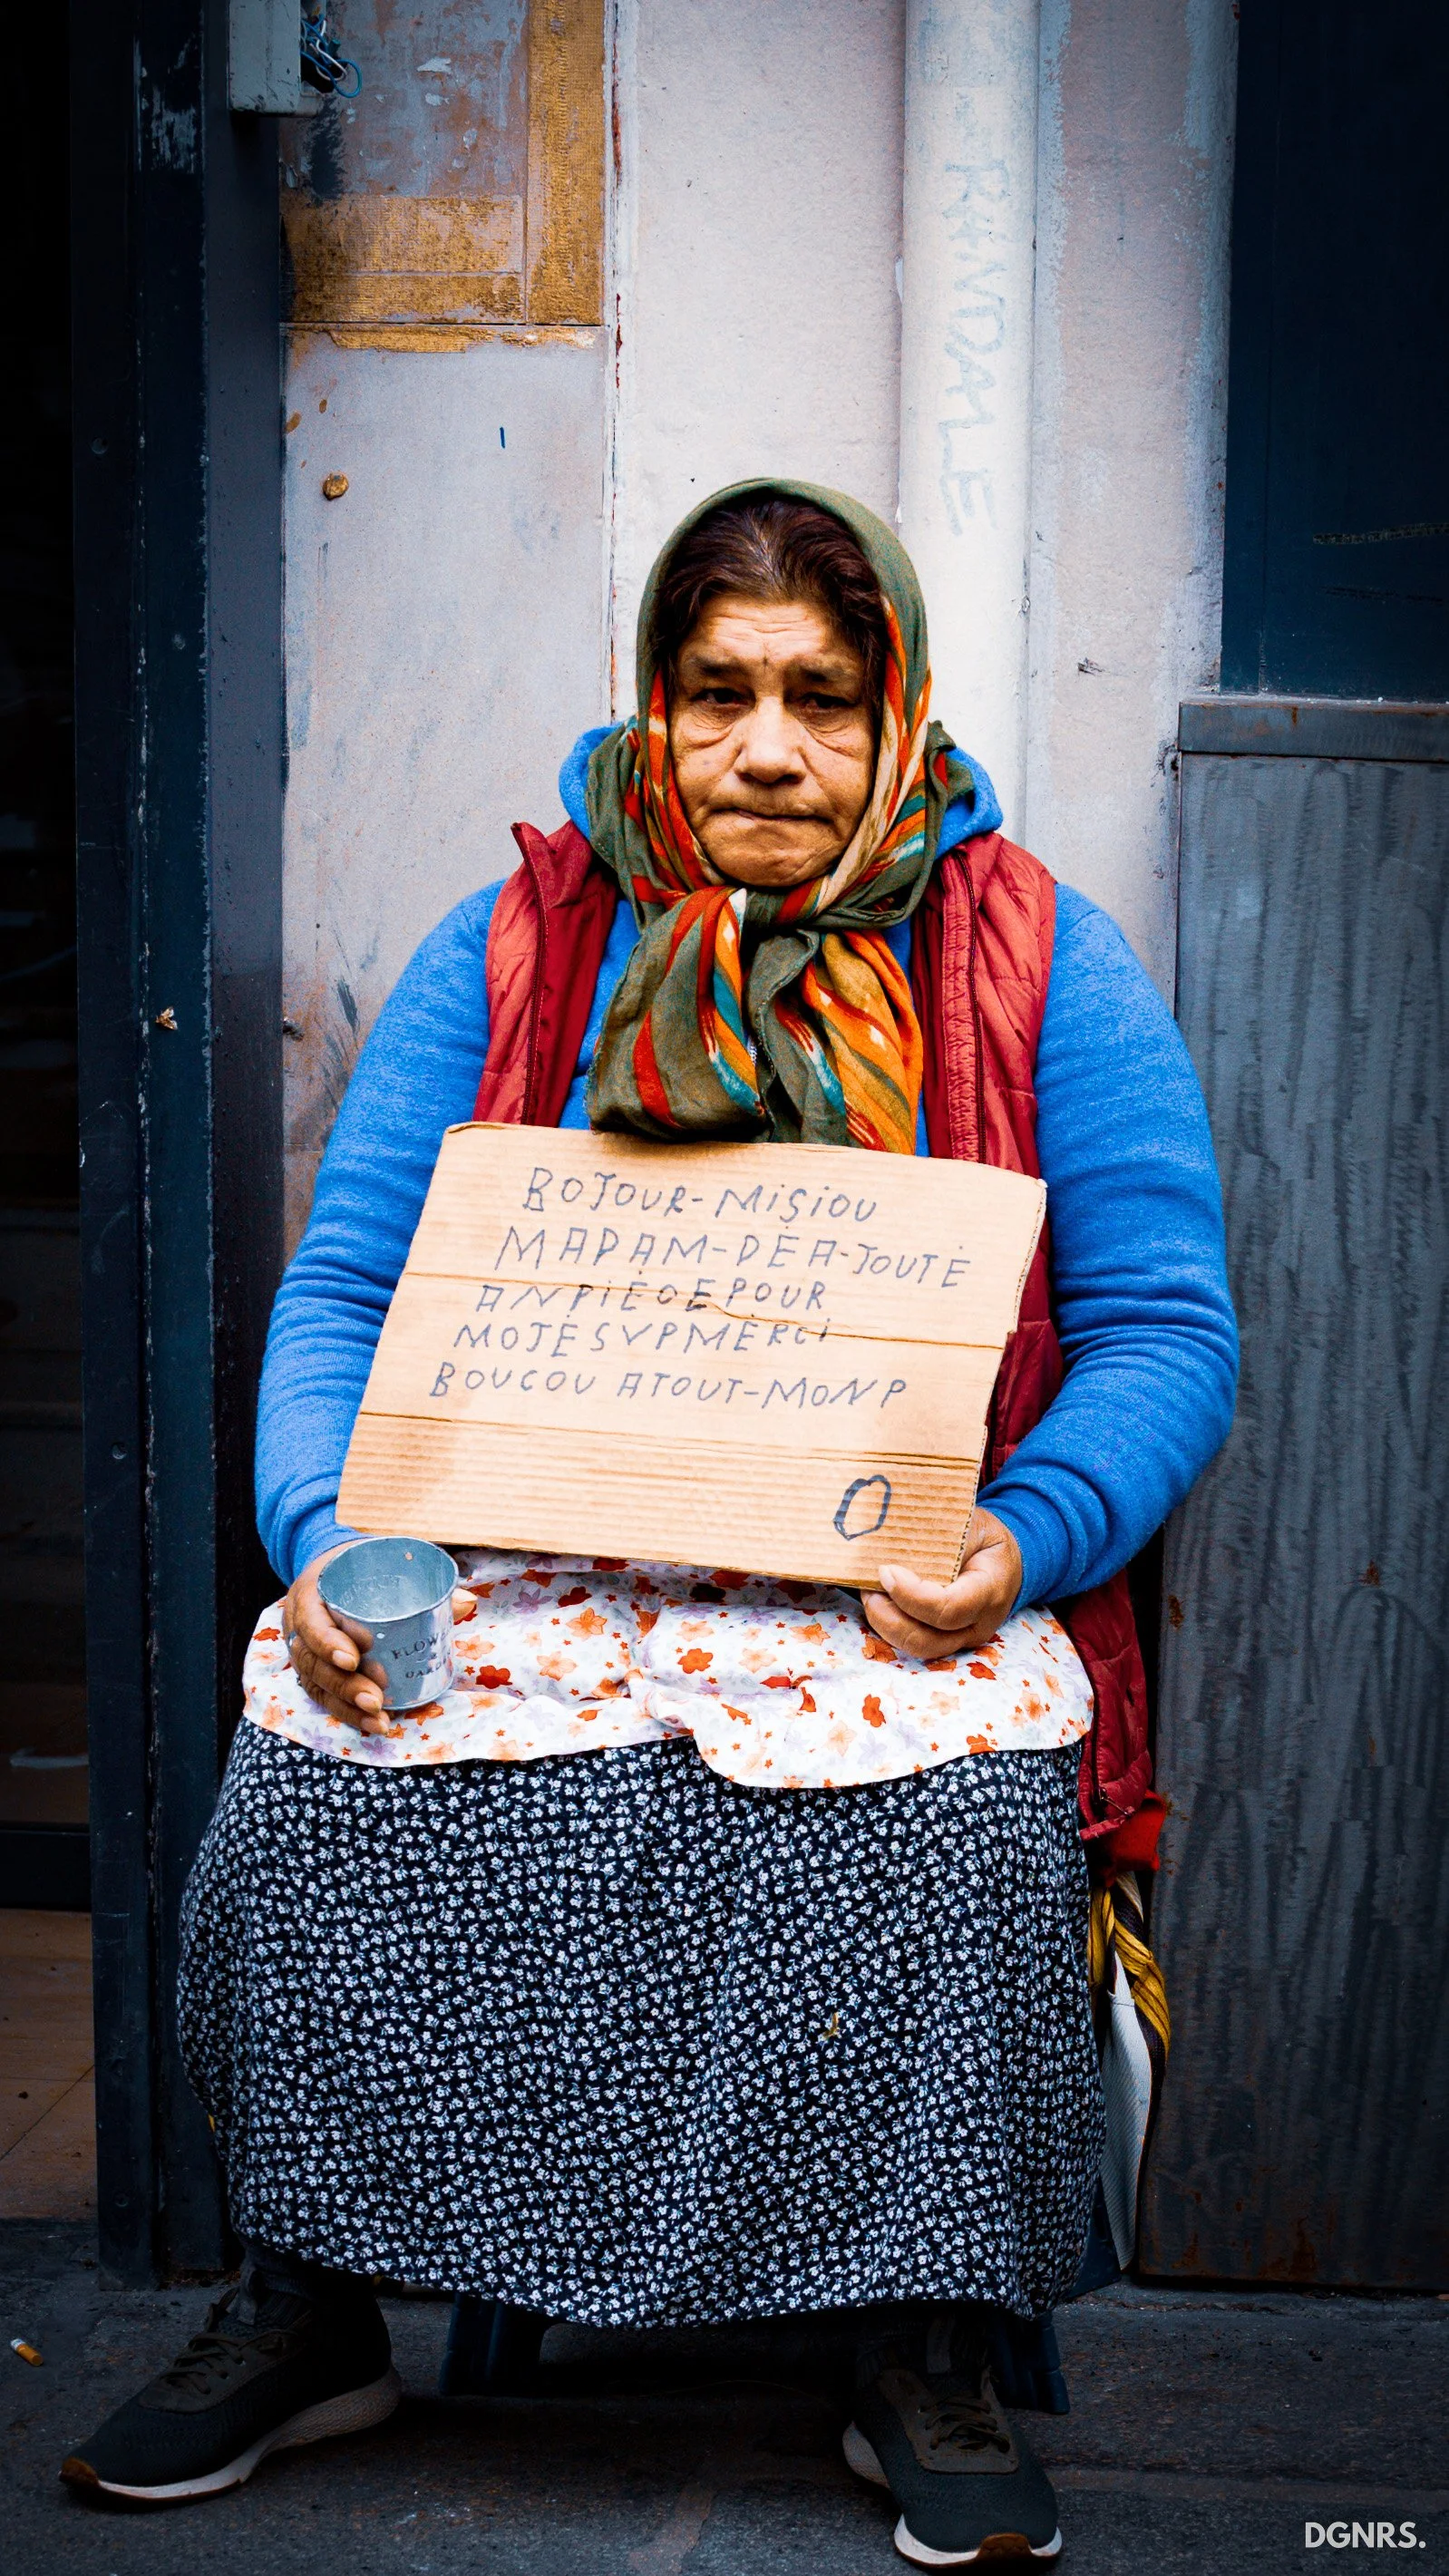 RANDALE
BOJOUR-MiSiOU
MADAM-DĖA-JOUTĖ
ANPiĖOEPOUR
MOJĖSVPMĖRCi
BOUCOU ATOUT-MONP
O
DGNRS.